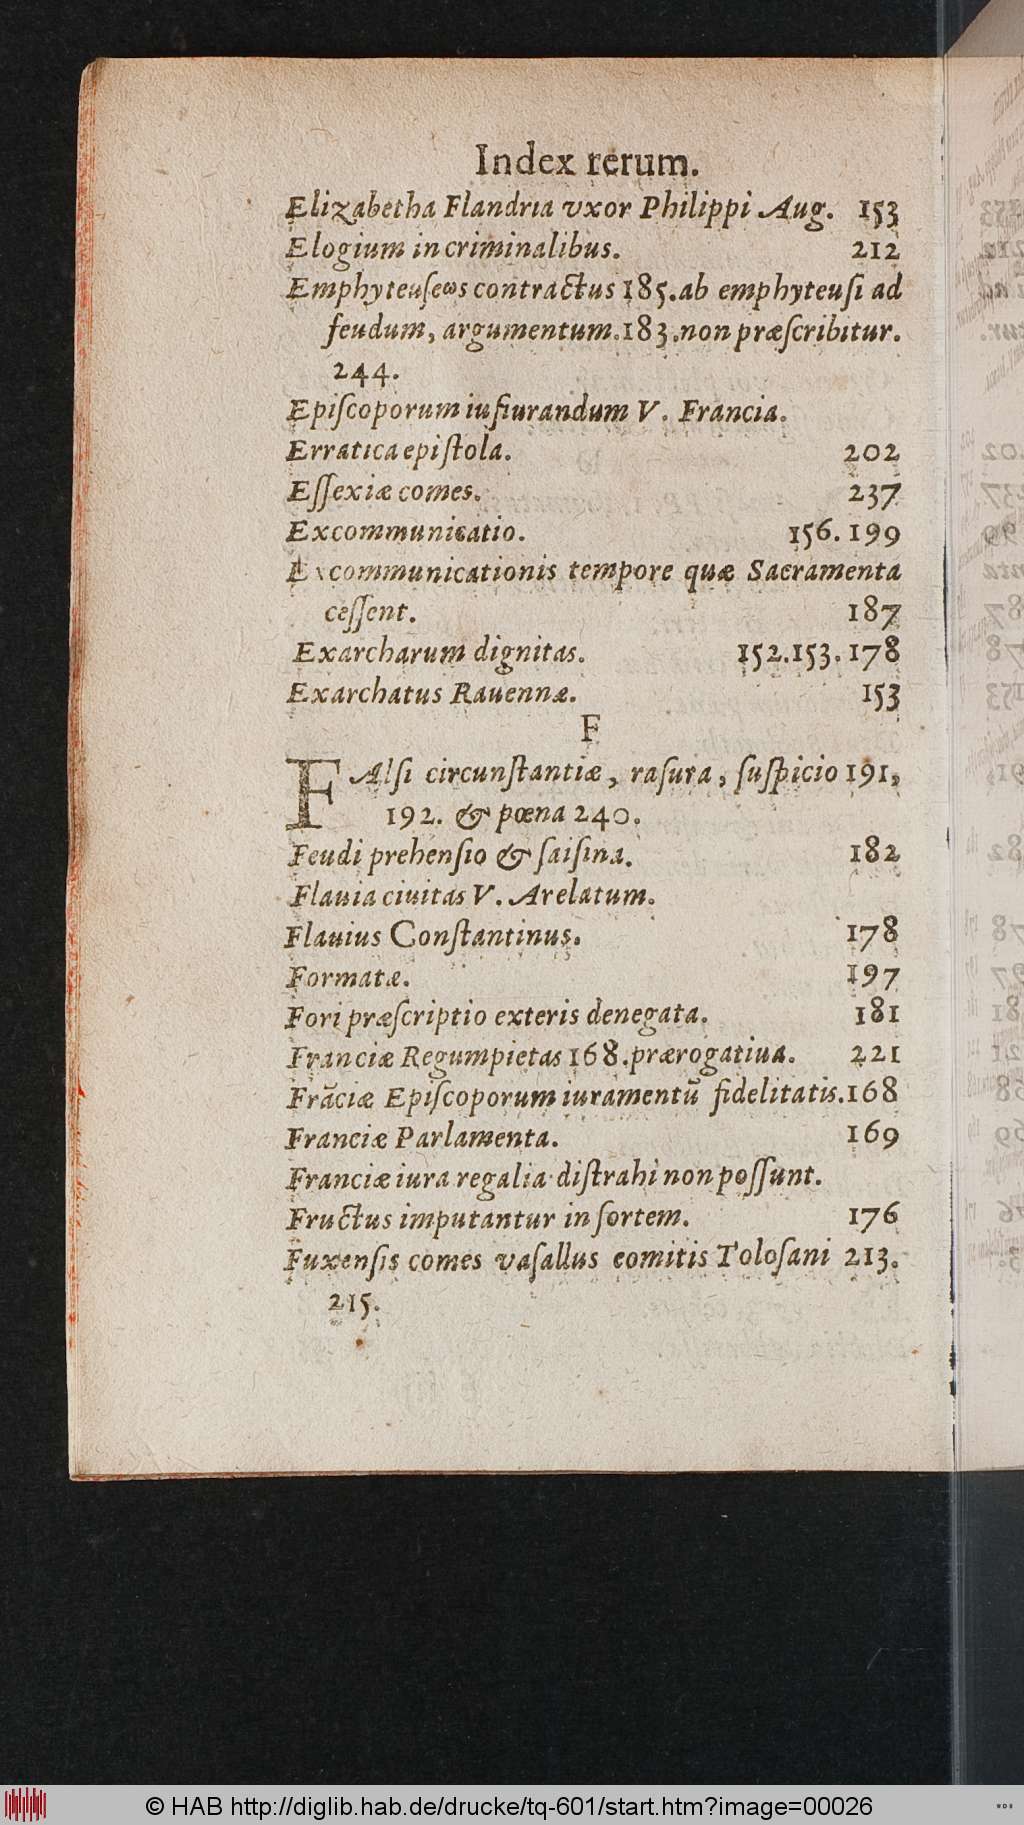 Index rerum.
Elizabetha Flandria vxor Philippi Aug. 153
Elogium in criminalibus. 212
Emphyteuseωs contractus 185. ab emphyteusi ad
feudum, argumentum. 183. non præscribitur.
244.
Episcoporum iusiurandum V. Francia.
Erratica epistola. 202
Essexiæ comes. 237
Excommunicatio. 156. 199
Excommunicationis tempore quæ Sacramenta
cessent. 187
Exarcharum dignitas. 152. 153. 178
Exarchatus Rauennæ. 153
F
FAlsi circunstantiæ, rasura, suspicio 191,
192. & pœna 240.
Feudi prehensio & saisina. 182
Flauia ciuitas V. Arelatum.
Flauius Constantinus. 178
Formatæ. 197
Fori præscriptio exteris denegata. 181
Franciæ Regum pietas 168. prærogatiua. 221
Frãciæ Episcoporum iuramentũ fidelitatis. 168
Franciæ Parlamenta. 169
Franciæ iura regalia distrahi non possunt.
Fructus imputantur in sortem. 176
Fuxensis comes vasallus comitis Tolosani 213.
215.
© HAB http://diglib.hab.de/drucke/tq-601/start.htm?image=00026